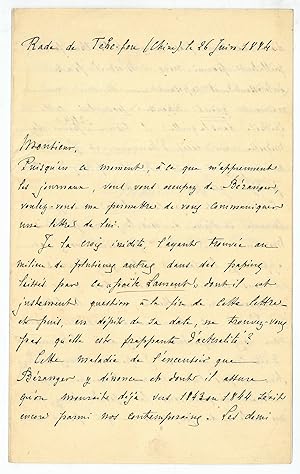 Rade de Tché-fou (Chine), le 26 Juin 1884
Monsieur,
Puisqu'en ce moment, à ce que m'apprennent
les journaux, vous vous occupez de Béranger,
voulez-vous me permettre de vous communiquer
une lettre de lui.
Je la crois inédite, l'ayant trouvée au
milieu de plusieurs autres dans des papiers
laissés par ce poëte Laurent, dont il est
justement question à la fin de cette lettre
et puis, en dépit de sa date, ne trouvez-vous
pas qu'elle est frappante d'actualité ?
Cette maladie de l'encensoir que
Béranger y dénonce et dont il assure
qu'on mourait déjà vers 1843 ou 1844 sévit
encore parmi nos contemporains. Les demi